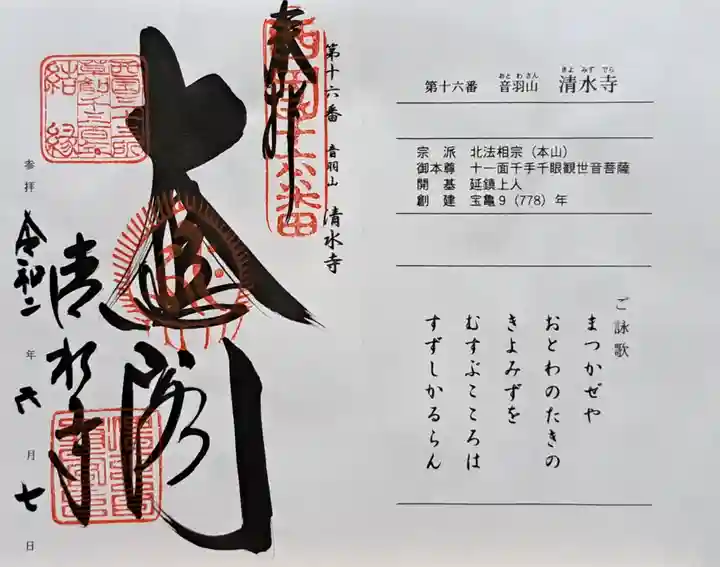 奉拝
西国十六番
第十六番 音羽山 清水寺
西国三十三所
草創千三百年
結縁
大悲閣
清水寺
参拝 令和二年 六月 七日
第十六番 音羽山 清水寺
おとわさん きよみずでら
宗 派 北法相宗（本山）
御本尊 十一面千手千眼観世音菩薩
開 基 延鎮上人
創 建 宝亀9（778）年
ご詠歌
まつかぜや
おとわのたきの
きよみずを
むすぶこころは
すずしかるらん